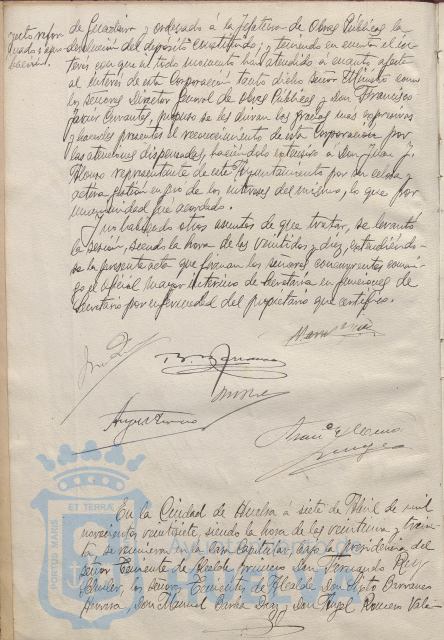 de Guardiario y ordenado á la Jefatura de Obras Públicas la
devolucion del depósito constituido; y teniendo en cuenta el in-
terés con que en todo momento han atendido á cuanto afecta
al interés de esta Corporación tanto dicho Señor Ministro como
los Señores Director General de Obras Públicas y Don Francisco
Javier Cervantes, propuso se les dieran las gracias mas expresivas
y hacerles presente el reconocimiento de esta Corporacion por
las atenciones dispensadas, haciéndolo extensivo á Don Juan J.
Alonso representante de este Ayuntamiento por su celosa y
activa gestion en pro de los intereses del mismo, lo que por
unanimidad fué acordado.
Y no habiendo otros asuntos de que tratar, se levantó
la sesión, siendo la hora de las veintidos y diez, extendiéndo-
se la presente acta que firman los señores concurrentes conmi-
go el oficial mayor interino de Secretaría en funciones de
Secretario por enfermedad del propietario que certifico.
ET TERRAE
PORTUS MARIS
En la Ciudad de Huelva á siete de Abril de mil
novecientos veintisiete, siendo la hora de las veintiuna y trein-
ta se reunieron en la casa capitular, bajo la presidencia del
Señor Teniente de Alcalde primero Don Fernando Rey
los Señores Tenientes de Alcalde Don Sixto Barranco
Don Manuel Diaz, Don Angel Romero